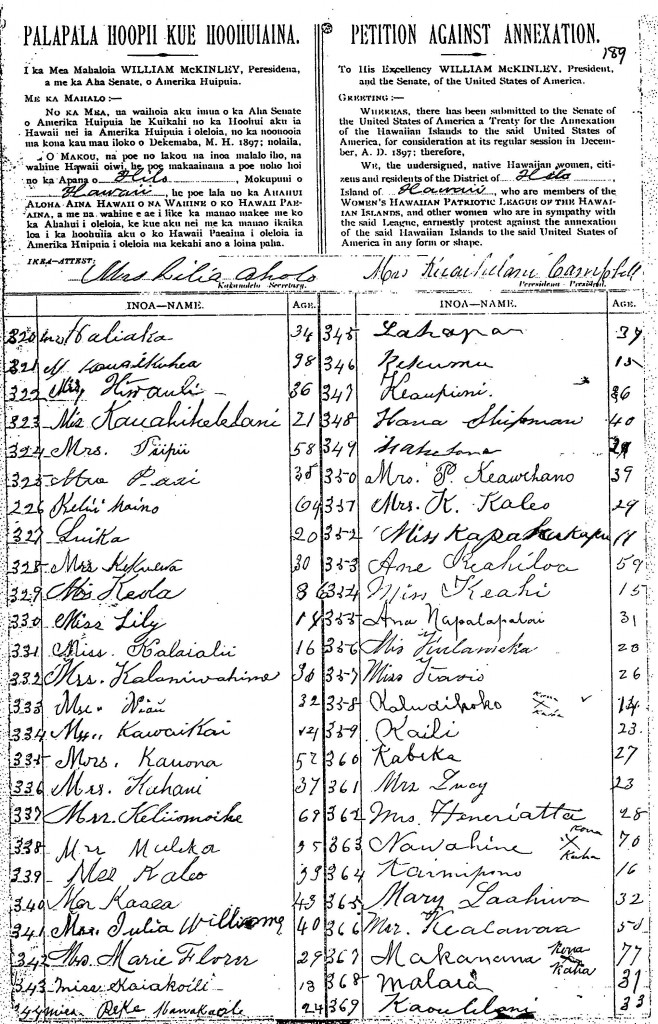 PALAPALA HOOPII KUE HOOHUIAINA.
I ka Mea Mahaloia WILLIAM McKINLEY, Peresidena,
a me ka Aha Senate, o Amerika Huipuia.
ME KA MAHALO:—
NO KA MEA, na waihoia aku imua o ka Aha Senate
o Amerika Huipuia he Kuikahi no ka Hoohui aku ia
Hawaii nei ia Amerika Huipuia i oleloia, no ka noonooia
ma kona kau mau iloko o Dekemaba, M. H. 1897; nolaila,
O MAKOU, na poe no lakou na inoa malalo iho, na
wahine Hawaii oiwi, he poe makaainana a poe noho hoi
no ka Apana o Hilo, Mokupuni o
Hawaii, he poe lala no ka AHAHUI
ALOHA AINA HAWAII O NA WAHINE O KO HAWAII PAE-
AINA, a me na wahine e ae i like ka manao makee me ko
ka Ahahui i oleloia, ke kue aku nei me ka manao ikaika
loa i ka hoohuiia aku o ko Hawaii Paeaina i oleloia ia
Amerika Huipuia i oleloia ma kekahi ano a loina paha.
IKEA—ATTEST:
Mrs Lilia Aholo
Kakauolelo—Secretary.
189
PETITION AGAINST ANNEXATION.
To His Excellency WILLIAM McKINLEY, President,
and the Senate, of the United States of America.
GREETING:—
WHEREAS, there has been submitted to the Senate of
the United States of America a Treaty for the Annexation
of the Hawaiian Islands to the said United States of
America, for consideration at its regular session in Decem-
ber, A. D. 1897; therefore,
WE, the undersigned, native Hawaiian women, citi-
zens and residents of the District of Hilo
Island of Hawaii, who are members of the
WOMEN'S HAWAIIAN PATRIOTIC LEAGUE OF THE HAWAI-
IAN ISLANDS, and other women who are in sympathy with
the said League, earnestly protest against the annexation
of the said Hawaiian Islands to the said United States of
America in any form or shape.
Mrs Kuaihelani Campbell
Peresidena—President.
INOA—NAME. AGE.
320 Haliaka 34
321 98
322 Hiwauli 36
323 Miss Kauahikelelani 21
324 Mrs. 58
325 Mrs 35
226 Kelii 64
327 Luika 20
328 Mrs 30
329 Mrs Keola 86
330 Miss Lily 18
331 Miss. Kalaialii 16
332 Mrs. Kalaniwahine 30
333 Mrs. Niau 32
334 Mrs. Kawaikai 24
335 Mrs. Kauona 52
336 Mrs. Kahani 37
337 Mrs. Keliimoike 69
338 Mrs 35
339 Mrs Kaleo 33
340 Mrs Kaaea 43
341 Mrs. Julia Williams 40
342 Mrs. Marie Flores 29
343 Miss Kaiakoili 13
344 24
INOA—NAME. AGE.
345 Lahapa 39
346 Kekumu 15
347 36
348 Hana Shipman 40
349
350 Mrs. P. Keawehano 39
351 Mrs. K. Kaleo 29
352 Miss Kapahukapu 11
353 Ane Keahiloa 59
354 Miss Keahi 15
355 Ana Napalapalai 31
356
357 Miss 26
358 Kona X Kaha 14
359 Kaili 23
360 Kabeka 27
361 Mrs Lucy 23
362 Mrs. Heneriatta 28
363 Nawahine Kona X Kaha 70
364 Kaimipono 16
365 Mary Laahiwa 32
366 Mrs. Kealawaa
367 Makanema Kona X Kaha 77
368 Malaea 31
369 Kaoulilani 33